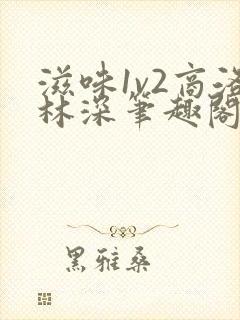 滋味1v2高洛
林深笔趣阁
黑雅桑